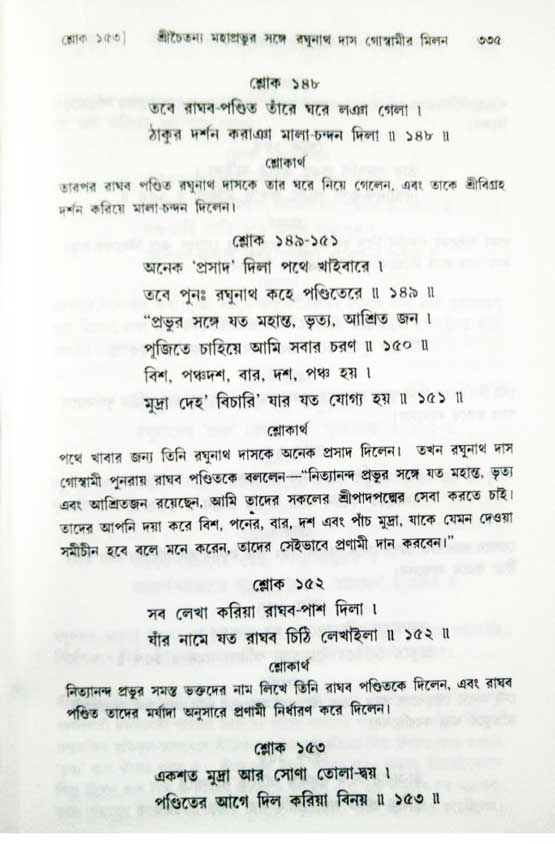 শ্লোক ১৫৩] শ্রীচৈতন্য মহাপ্রভুর সঙ্গে রঘুনাথ দাস গোস্বামীর মিলন ৩৩৫
শ্লোক ১৪৮
তবে রাঘব-পণ্ডিত তাঁরে ঘরে লঞা গেলা ।
ঠাকুর দর্শন করাঞা মালা-চন্দন দিলা ॥ ১৪৮ ॥
শ্লোকার্থ
তারপর রাঘব পণ্ডিত রঘুনাথ দাসকে তার ঘরে নিয়ে গেলেন, এবং তাকে শ্রীবিগ্রহ
দর্শন করিয়ে মালা-চন্দন দিলেন।
শ্লোক ১৪৯-১৫১
অনেক ‘প্রসাদ’ দিলা পথে খাইবারে ।
তবে পুনঃ রঘুনাথ কহে পণ্ডিতেরে ॥ ১৪৯ ॥
“প্রভুর সঙ্গে যত মহান্ত, ভৃত্য, আশ্রিত জন ।
পূজিতে চাহিয়ে আমি সবার চরণ ॥ ১৫০ ॥
বিশ, পঞ্চদশ, বার, দশ, পঞ্চ হয় ।
মুদ্রা দেহ’ বিচারি’ যার যত যোগ্য হয় ॥ ১৫১ ॥
শ্লোকার্থ
পথে খাবার জন্য তিনি রঘুনাথ দাসকে অনেক প্রসাদ দিলেন। তখন রঘুনাথ দাস
গোস্বামী পুনরায় রাঘব পণ্ডিতকে বললেন—“নিত্যানন্দ প্রভুর সঙ্গে যত মহান্ত, ভৃত্য
এবং আশ্রিতজন রয়েছেন, আমি তাদের সকলের শ্রীপাদপদ্মের সেবা করতে চাই।
তাদের আপনি দয়া করে বিশ, পনের, বার, দশ এবং পাঁচ মুদ্রা, যাকে যেমন দেওয়া
সমীচীন হবে বলে মনে করেন, তাদের সেইভাবে প্রণামী দান করবেন।”
শ্লোক ১৫২
সব লেখা করিয়া রাঘব-পাশ দিলা ।
যাঁর নামে যত রাঘব চিঠি লেখাইলা ॥ ১৫২ ॥
শ্লোকার্থ
নিত্যানন্দ প্রভুর সমস্ত ভক্তদের নাম লিখে তিনি রাঘব পণ্ডিতকে দিলেন, এবং রাঘব
পণ্ডিত তাদের মর্যাদা অনুসারে প্রণামী নির্ধারণ করে দিলেন।
শ্লোক ১৫৩
একশত মুদ্রা আর সোণা তোলা-দ্বয় ।
পণ্ডিতের আগে দিল করিয়া বিনয় ॥ ১৫৩ ॥